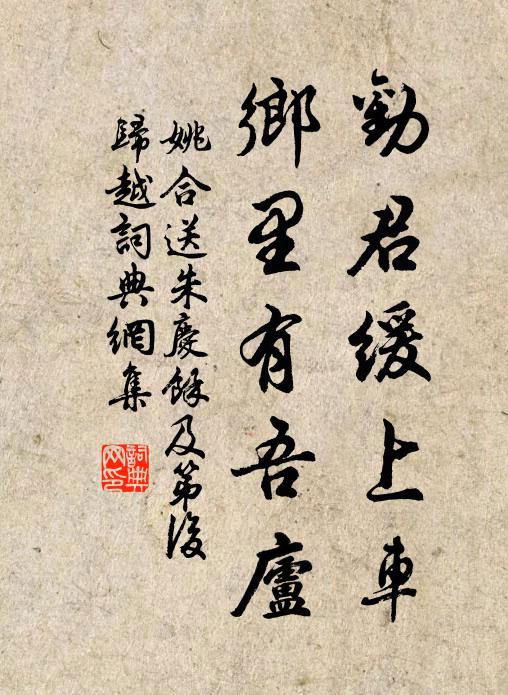 勸君緩上車
鄉里有吾廬
姚合送朱慶餘及第後
歸越詞典網集
詞典
网印